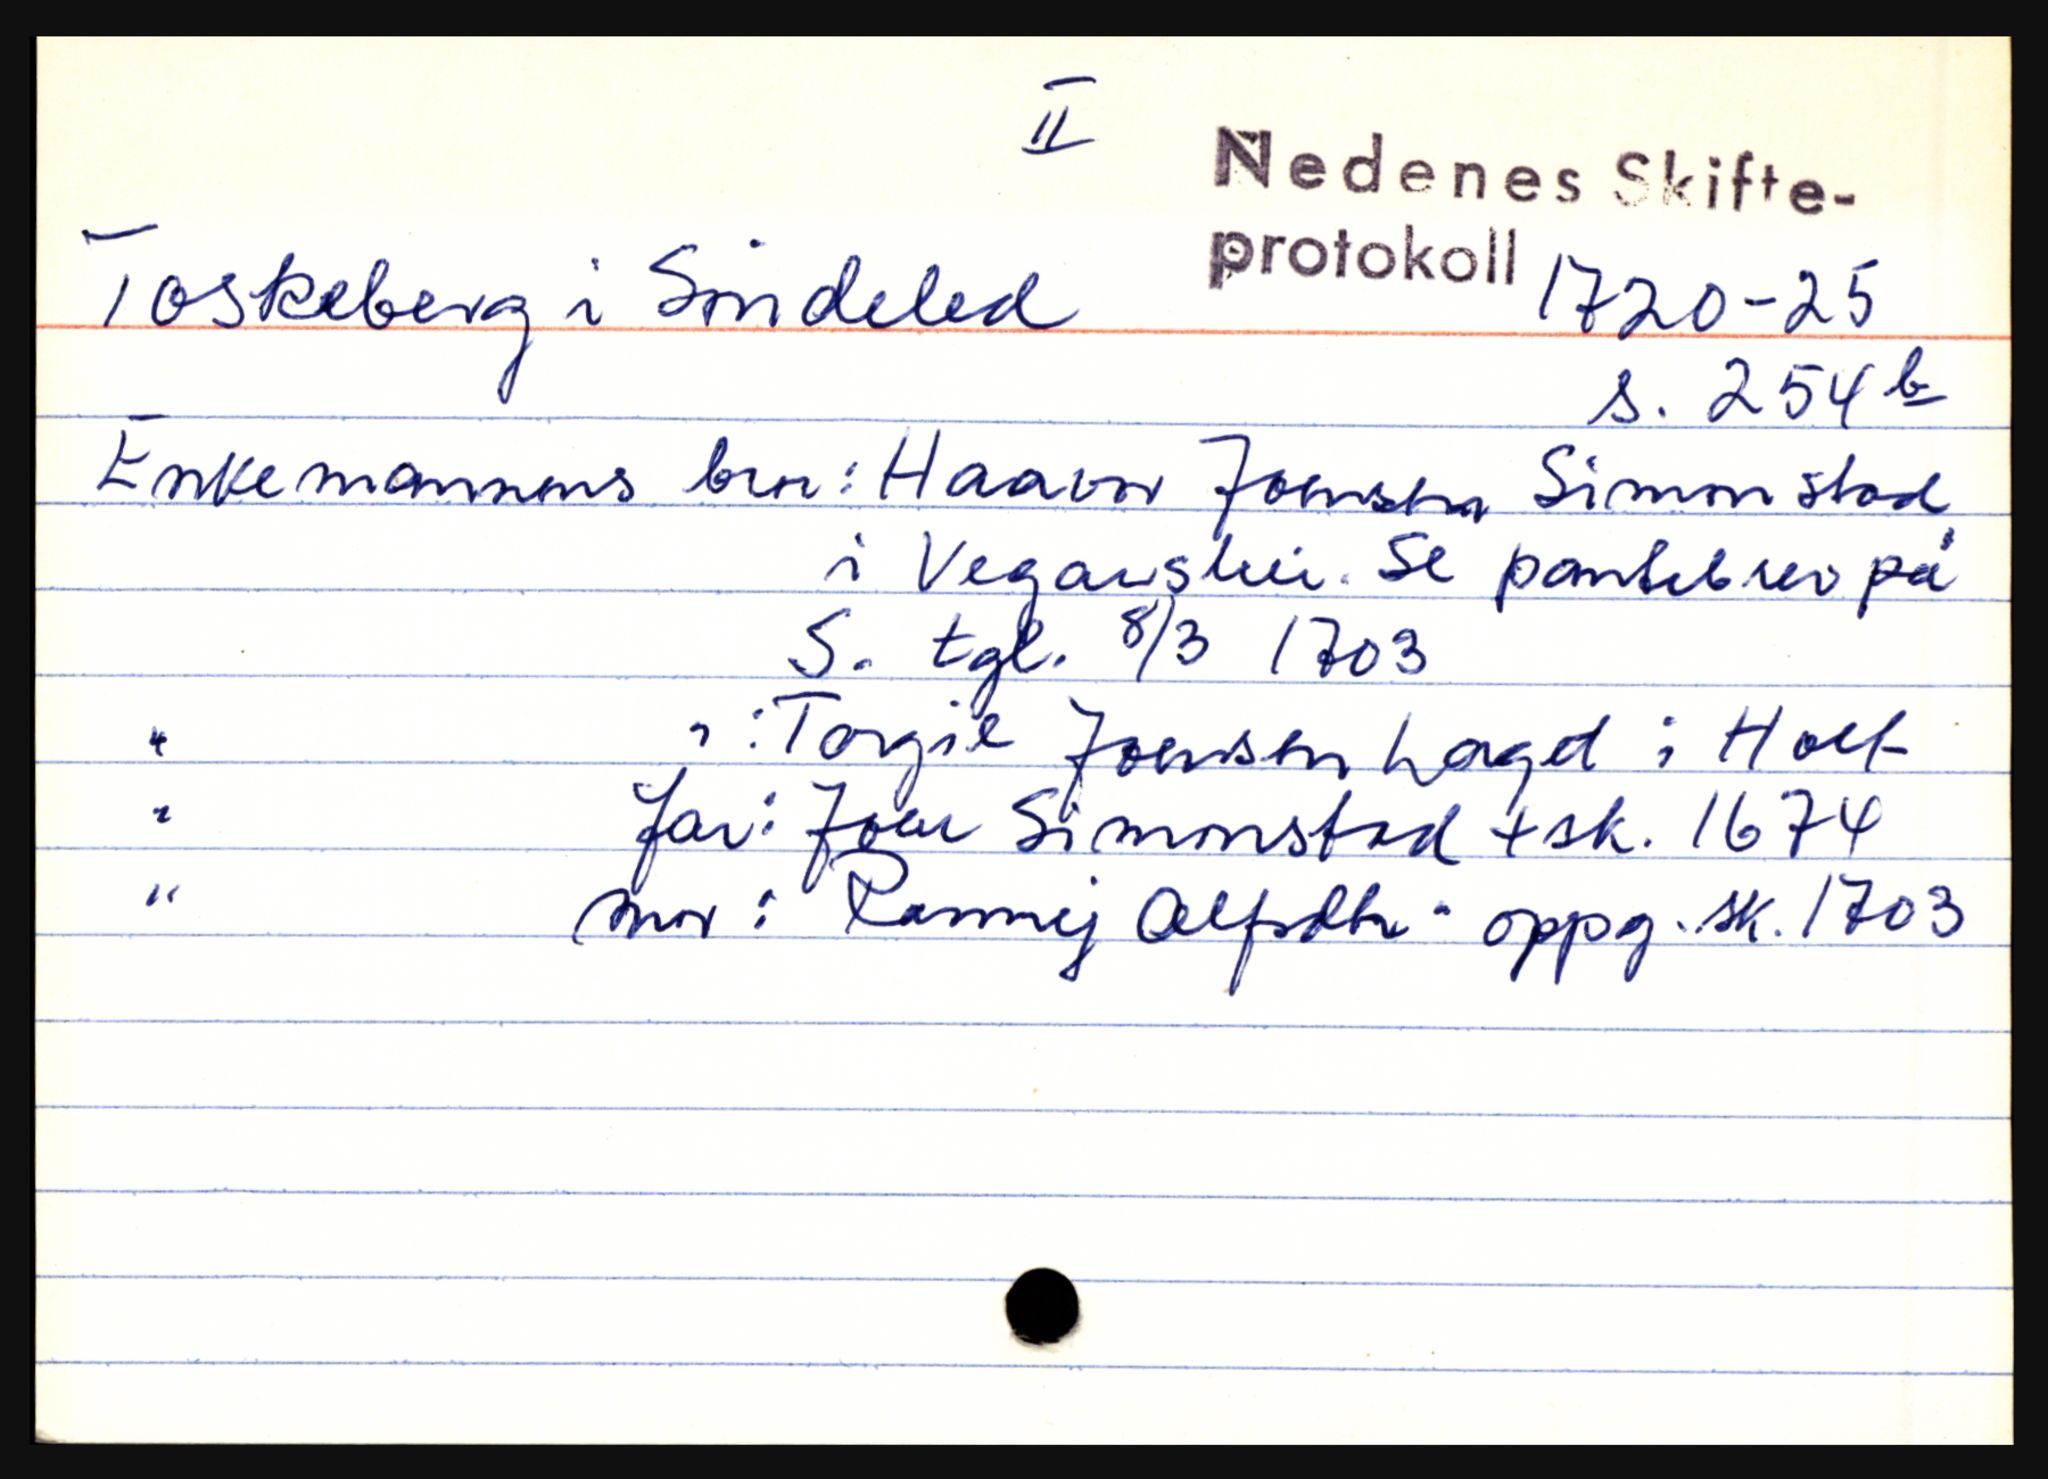 II
Nedenes Skifte-
protokoll 1720-25
Toskeberg i Søndeled
s. 254 b
Enkemannens bror: Haavor Joensen Simonstad
i Vegarshei. Se pantebrev på
S. tgl. 8/3 1703
" " : Torgil Joensen Laget i Holt
" far: Joen Simonstad + sk. 1674
" mor: Ronnej Alfsdtr. oppg. sk. 1703